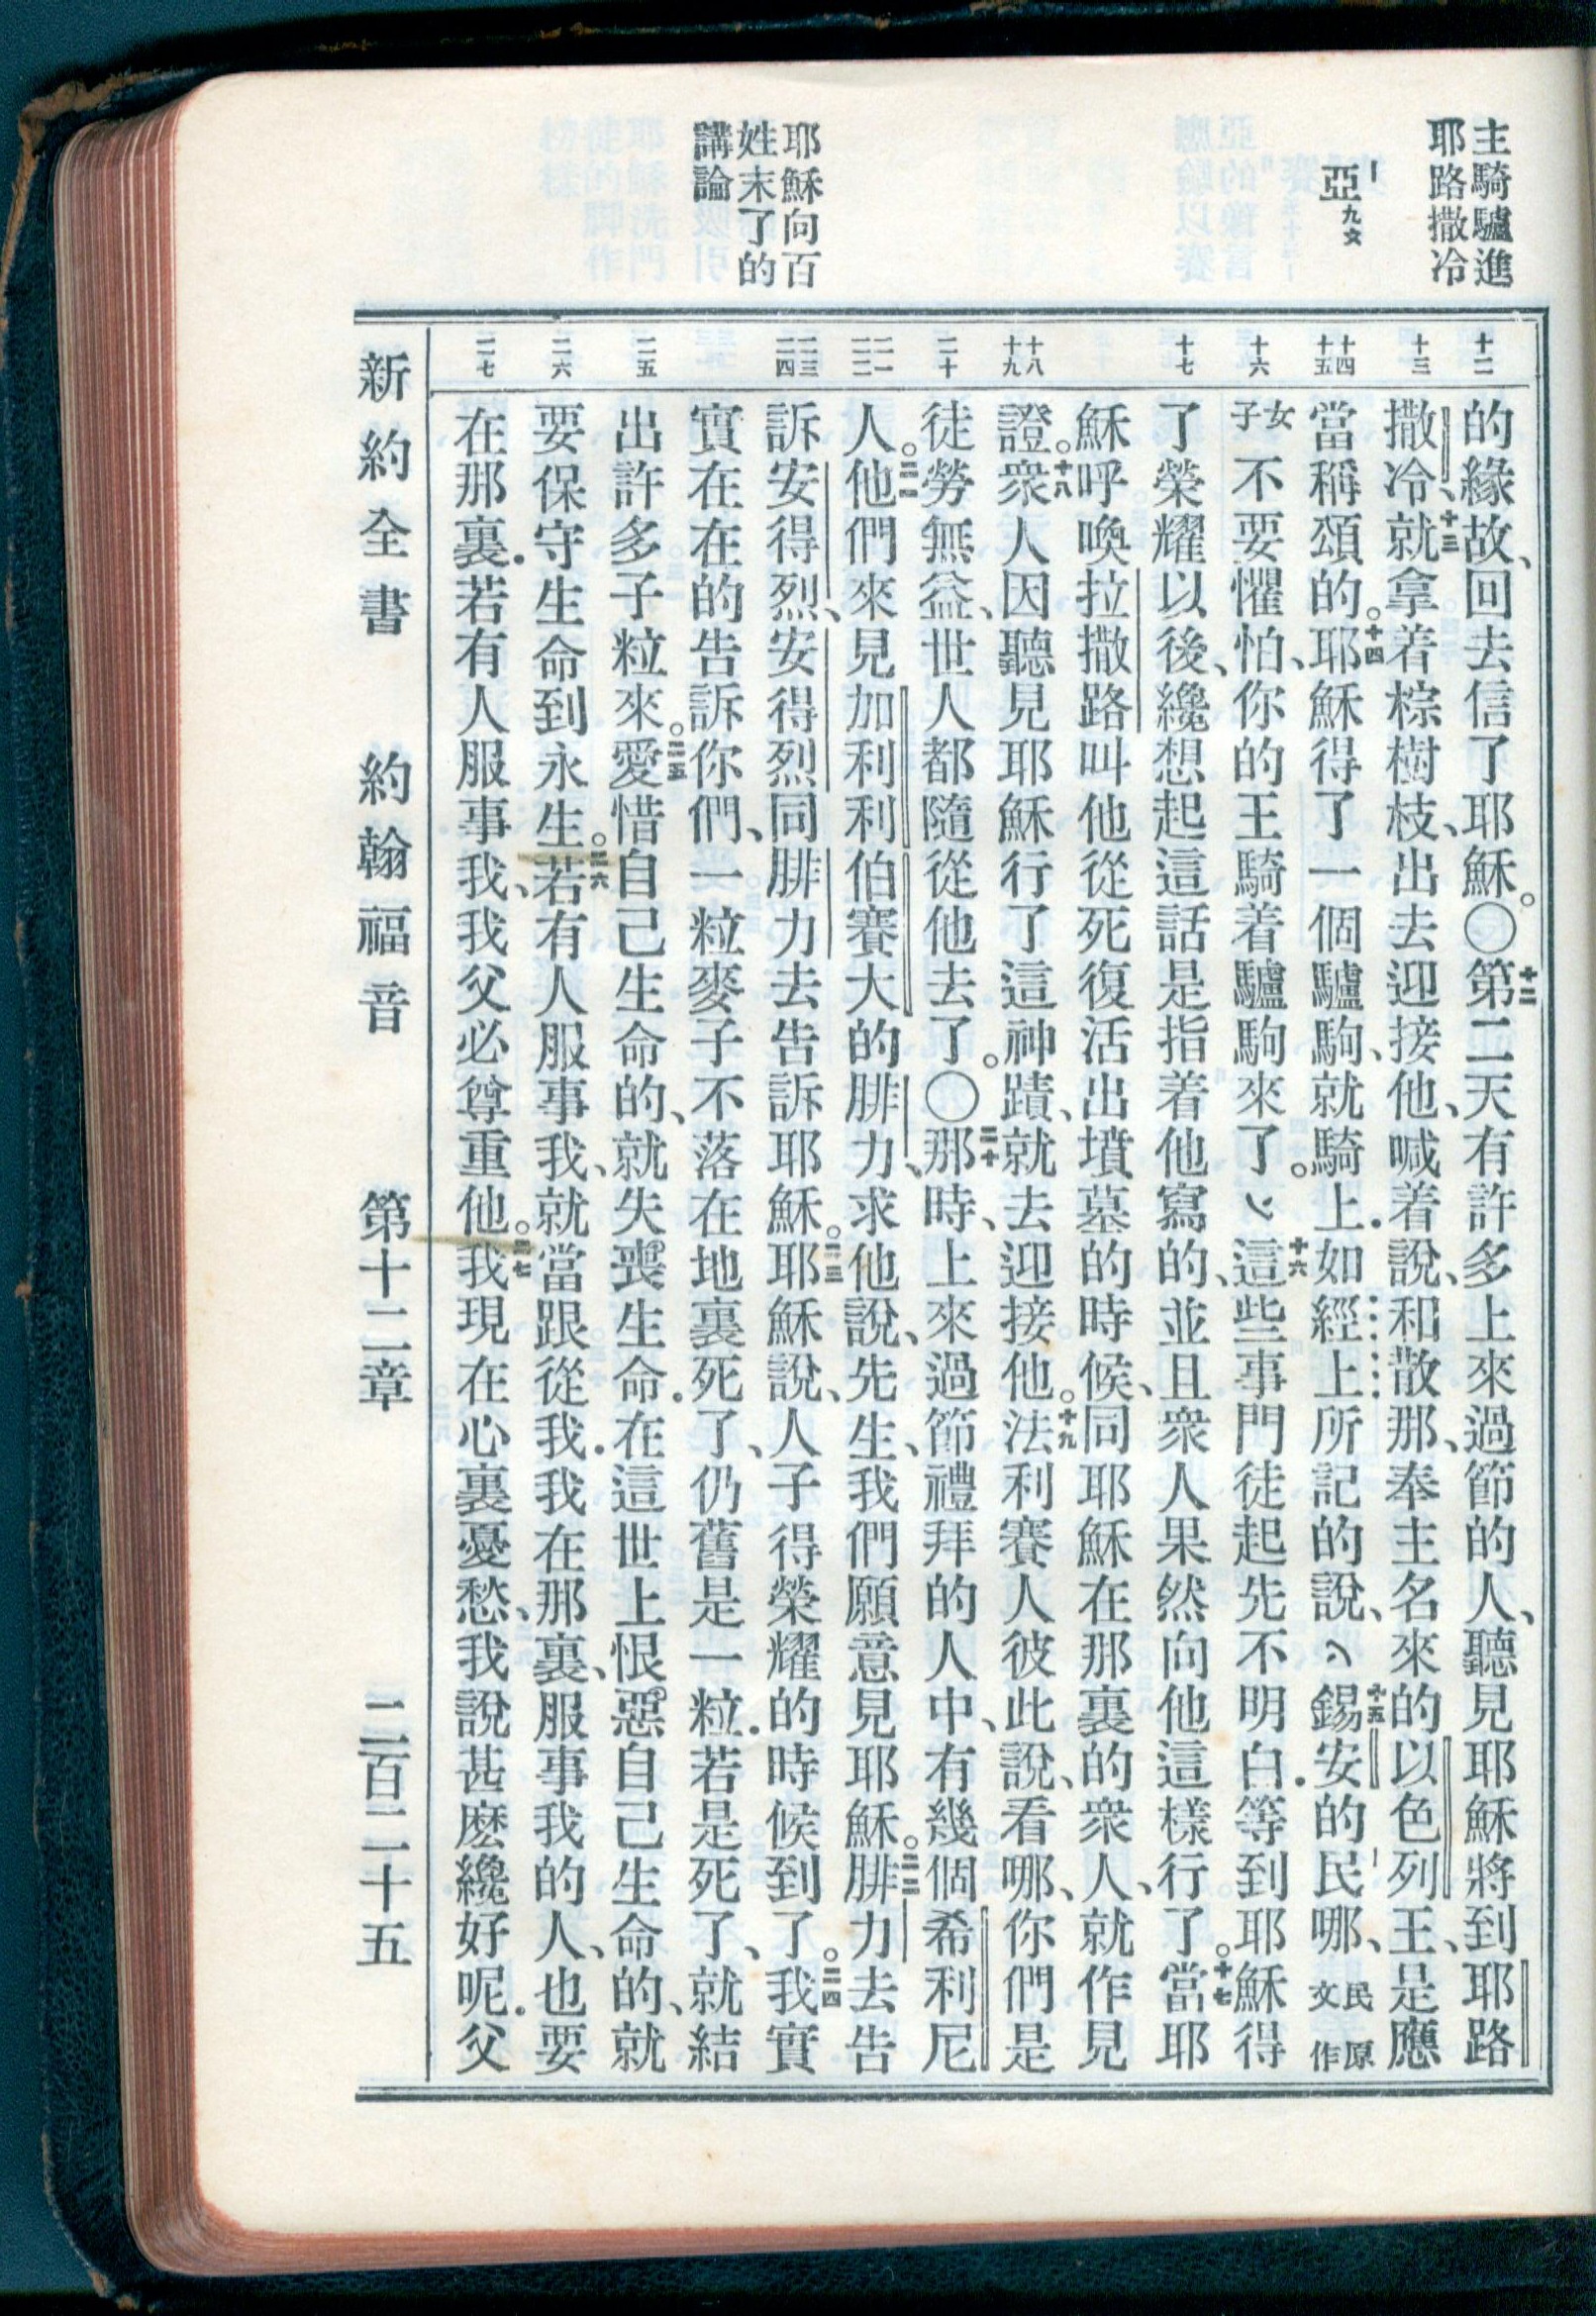 主騎驢進
耶路撒冷
亞九文
耶穌向百
姓末了的
講論
十二
十三
十四
十五
十六
十七
十八
十九
二十
二一
二二
二三
二四
二五
二六
二七
的緣故、回去信了耶穌。〇十二第二天有許多上來過節的人、聽見耶穌將到耶路
撒冷、十三就拿着棕樹枝、出去迎接他、喊着說、和散那、奉主名來的以色列王、是應
當稱頌的。十四耶穌得了一個驢駒、就騎上．如經上所記的說、十五錫安的民哪、民原文作
女子不要懼怕、你的王騎着驢駒來了。十六這些事門徒起先不明白．等到耶穌得
了榮耀以後、纔想起這話是指着他寫的、並且衆人果然向他這樣行了。十七當耶
穌呼喚拉撒路叫他從死復活出墳墓的時候、同耶穌在那裏的衆人、就作見
證。十八衆人因聽見耶穌行了這神蹟、就去迎接他。十九法利賽人彼此說、看哪、你們是
徒勞無益、世人都隨從他去了。〇二十那時、上來過節禮拜的人中、有幾個希利尼
人。二一他們來見加利利伯賽大的腓力、求他說、先生、我們願意見耶穌。二二腓力去告
訴安得烈、安得烈同腓力去告訴耶穌。二三耶穌說、人子得榮耀的時候到了。二四我實
實在在的告訴你們、一粒麥子不落在地裏死了、仍舊是一粒．若是死了、就結
出許多子粒來。二五愛惜自己生命的、就失喪生命．在這世上恨惡自己生命的、就
要保守生命到永生。二六若有人服事我、就當跟從我．我在那裏、服事我的人、也要
在那裏．若有人服事我、我父必尊重他。二七我現在心裏憂愁、我說甚麽纔好呢．父
新約全書 約翰福音 第十二章 二百二十五